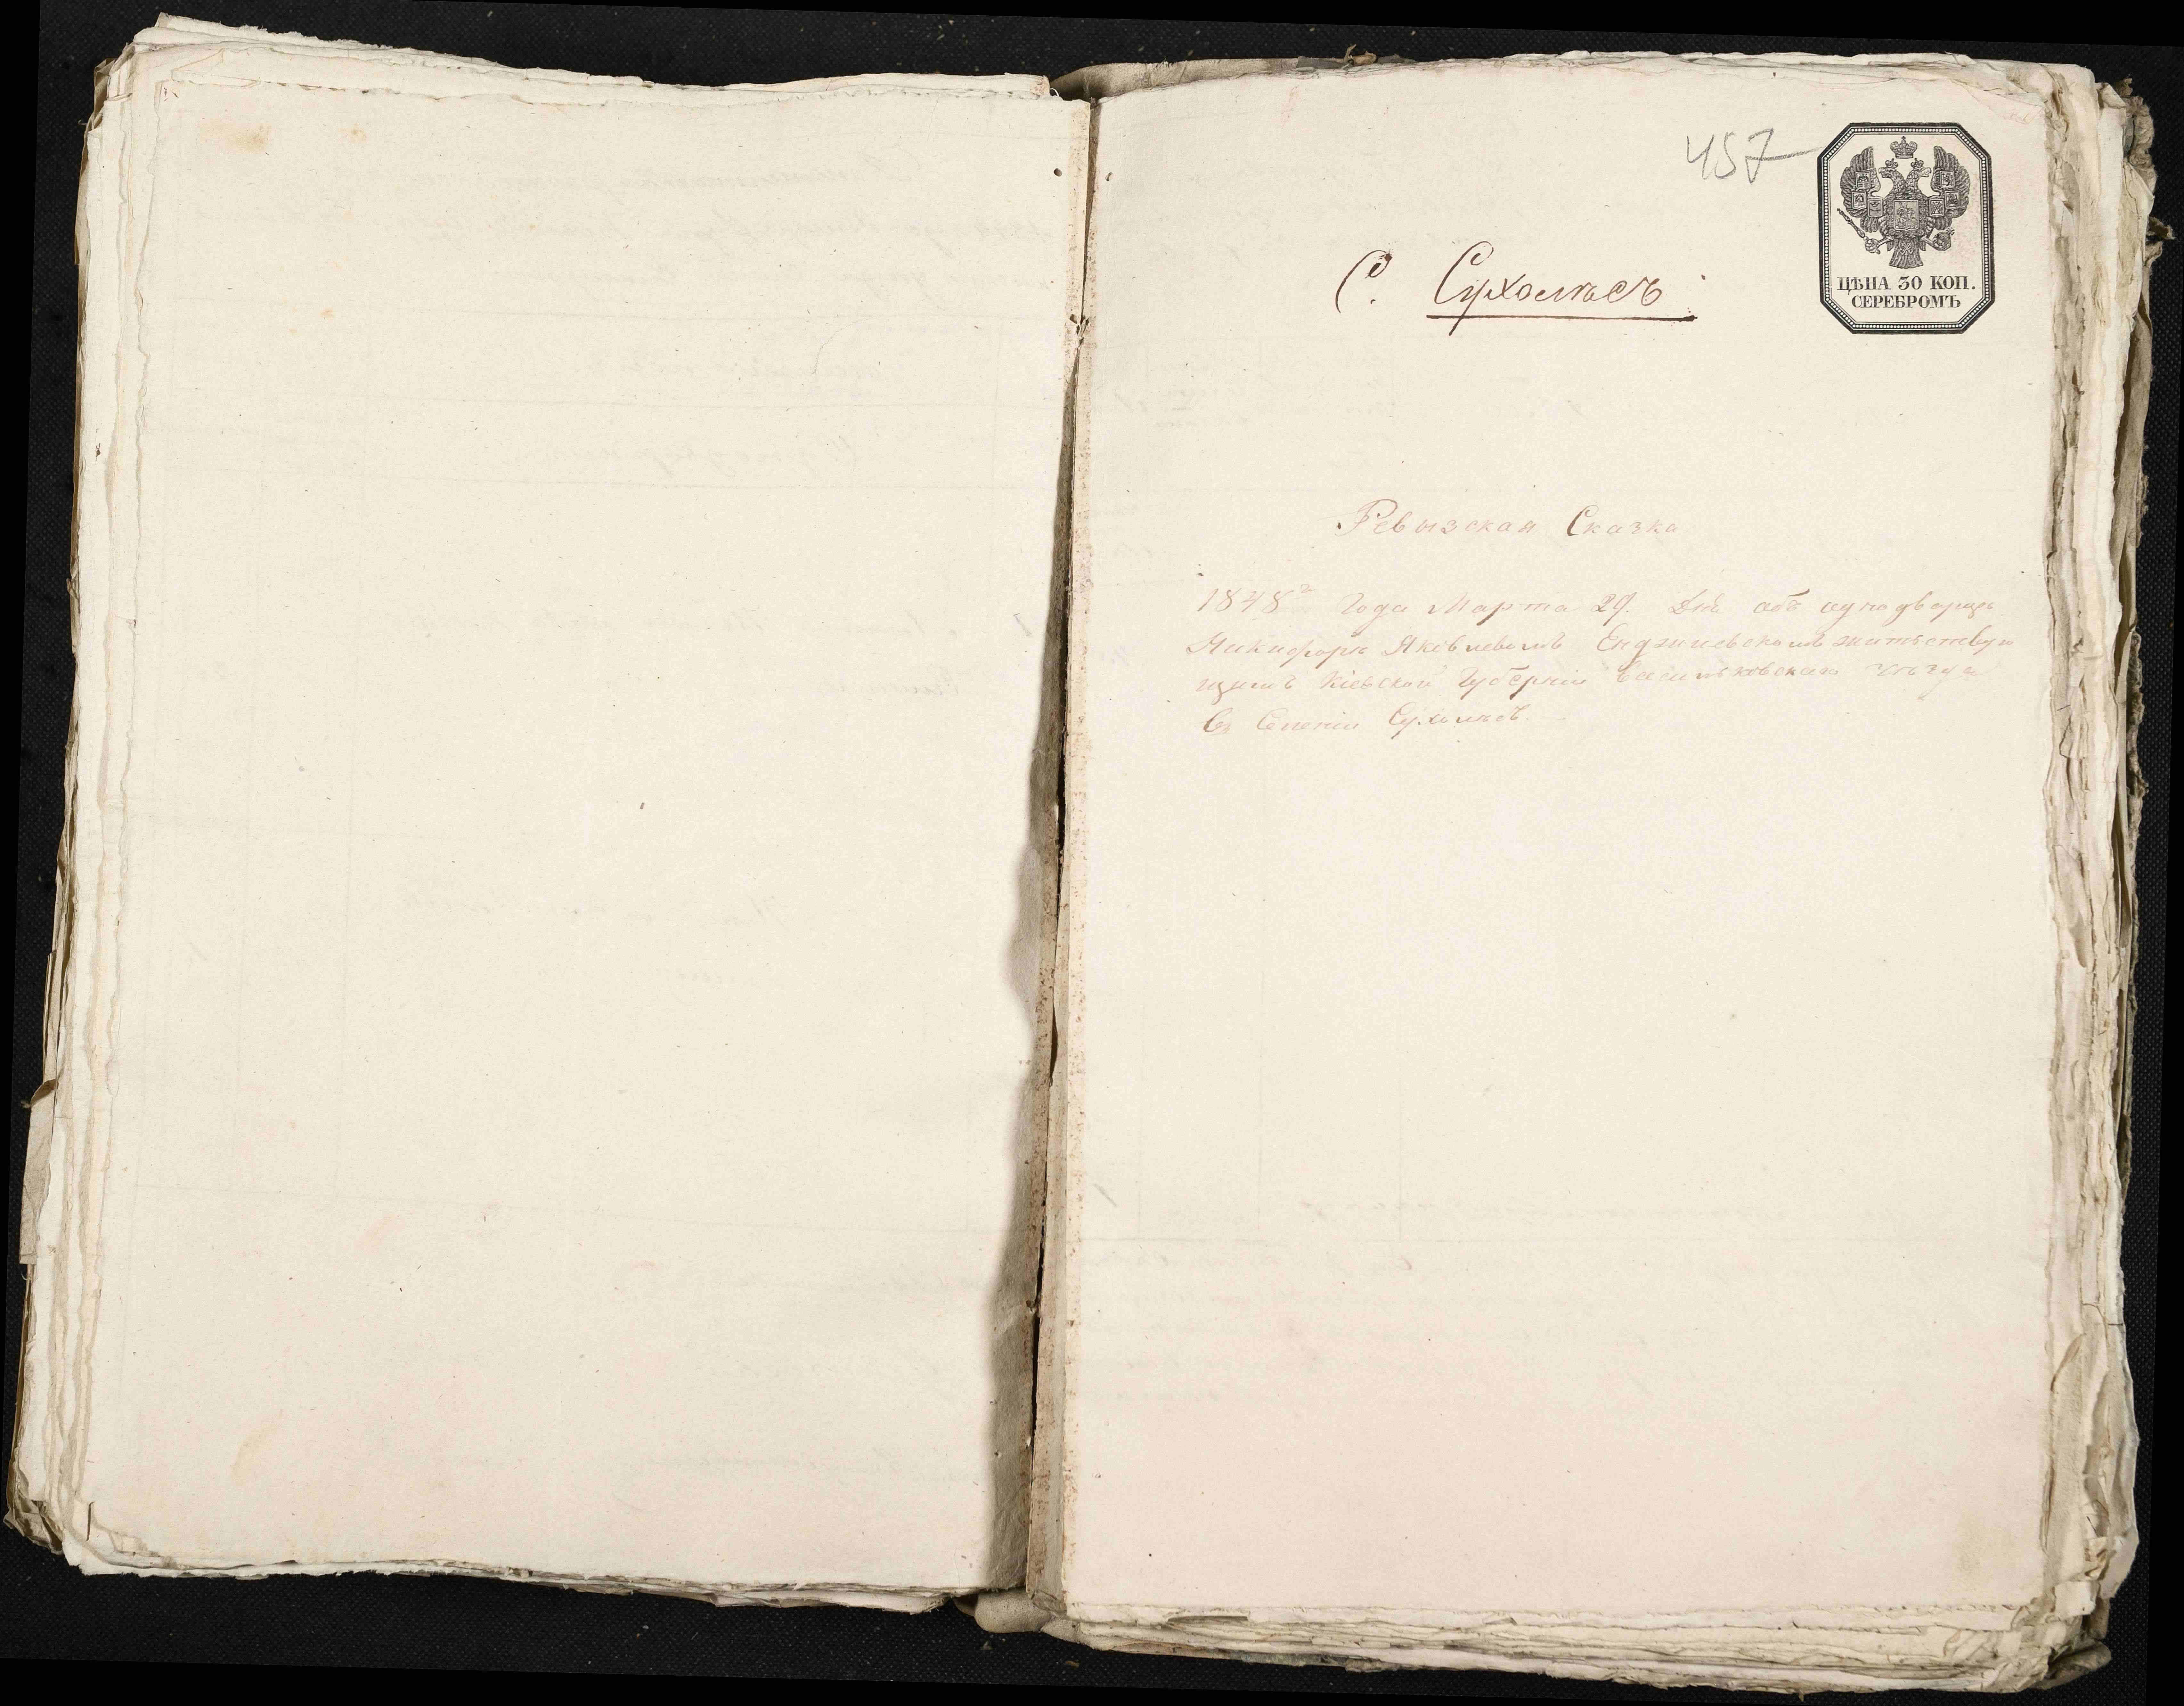 457
ЦѢНА 30 КОП.
СЕРЕБРОМЪ
С. Сухолѣсъ
Ревызская Сказка
Года Марта Дня объ однодворцѣ
Никифорѣ Яковлевомъ житѣльствую
щимъ Кіевской Губерніи Васильковскаго Уѣзда
въ Селеніи